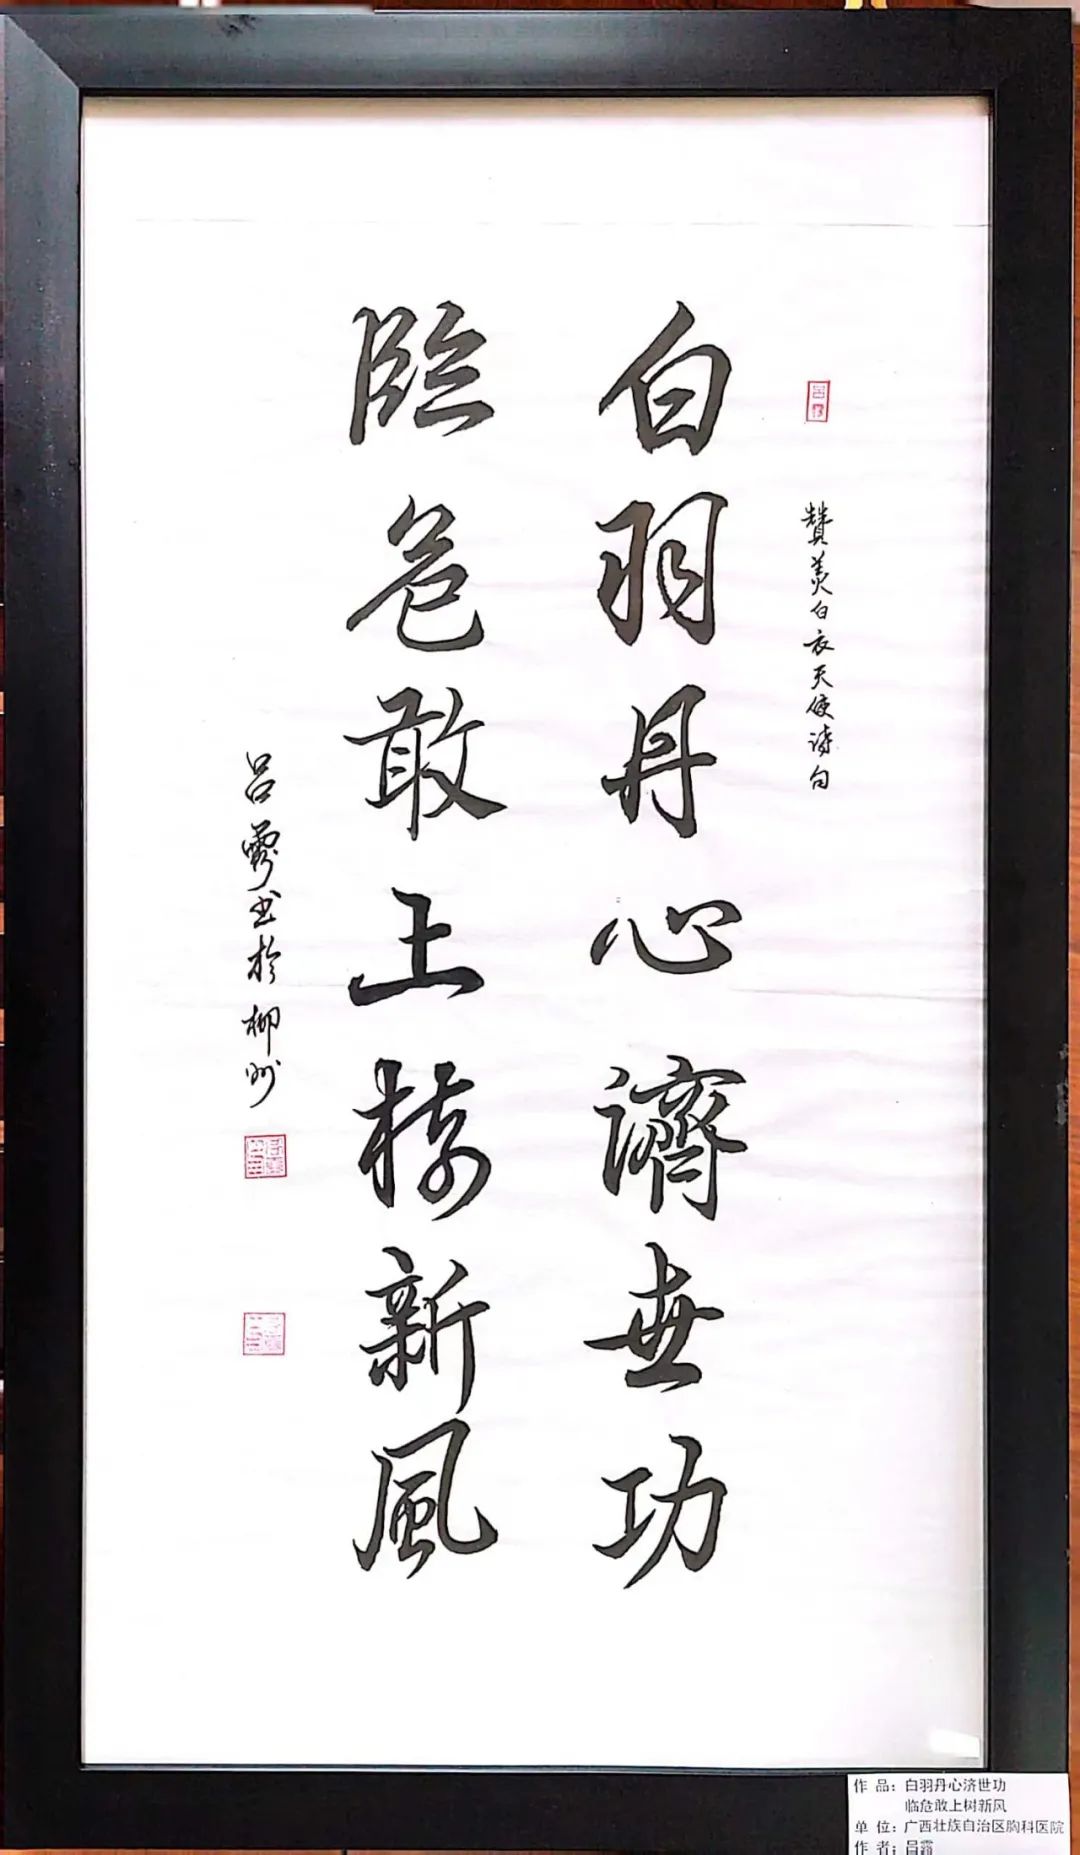 赞美白衣天使诗句
白羽丹心濟世功
臨危敢上树新風
吕霞书於柳州
作 品：白羽丹心济世功
临危敢上树新风
单 位：广西壮族自治区胸科医院
作 者：吕霞